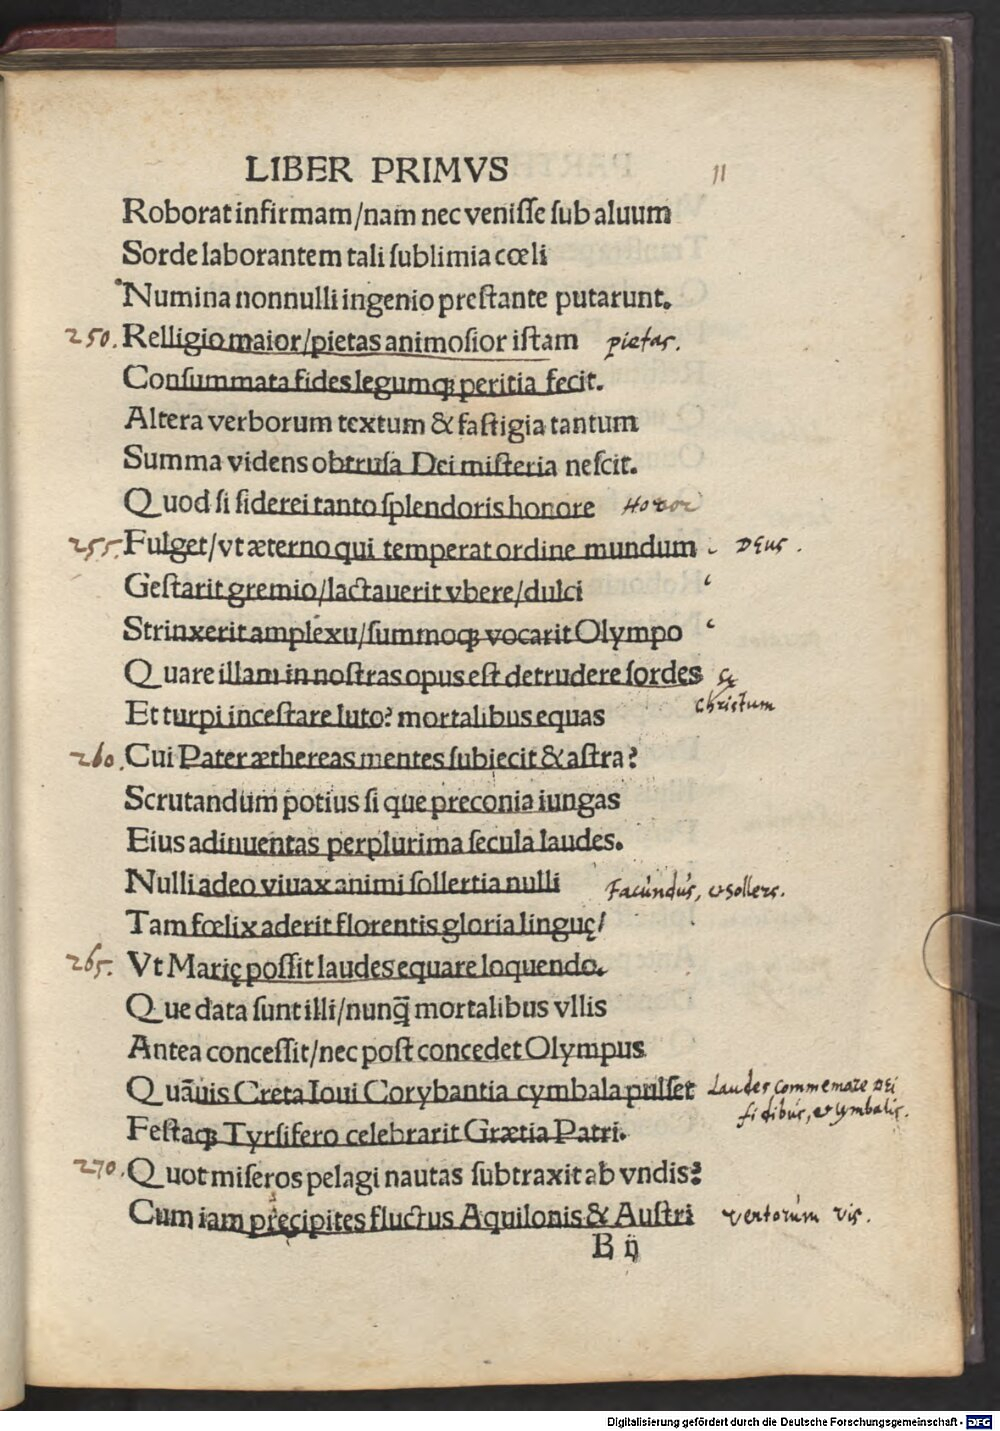 LIBER PRIMVS 11
Roborat infirmam/nam nec veniſſe ſub aluum
Sorde laborantem tali ſublimia cœli
Numina nonnulli ingenio preſtante putarunt.
250. Relligio maior/pietas animoſior iſtam pietas.
Conſummata fides legumqꝫ peritia fecit.
Altera verborum textum & faſtigia tantum
Summa videns obtruſa Dei miſteria neſcit.
Quod ſi ſiderei tanto ſplendoris honore Honor
255. Fulget/vt æterno qui temperat ordine mundum DEus.
Geſtarit gremio/lactauerit vbere/dulci
Strinxerit amplexu/ſummoqꝫ vocarit Olympo
Quare illam in noſtras opus eſt detrudere ſordes
Christum
Et turpi inceſtare luto? mortalibus equas
260. Cui Pater æthereas mentes ſubiecit & aſtra?
Scrutandum potius ſi que preconia iungas
Eius adinuentas perplurima ſecula laudes.
Nulli adeo viuax animi ſollertia nulli Facúndús, & sollers.
Tam fœlix aderit florentis gloria linguę/
265. Vt Marię poſſit laudes equare loquendo.
Que data ſunt illi/nunq̃ mortalibus vllis
Antea conceſſit/nec poſt concedet Olympus
Quãuis Creta Ioui Corybantia cymbala pulſet Laudes commemorare DEi
fidibús, & cymbalis.
Feſtaqꝫ Tyrſifero celebrarit Grætia Patri.
270. Quot miſeros pelagi nautas ſubtraxit ab vndis?
Cum iam pręcipites fluctus Aquilonis & Auſtri ventorúm vis.
B ij
Digitalisierung gefördert durch die Deutsche Forschungsgemeinschaft - DFG